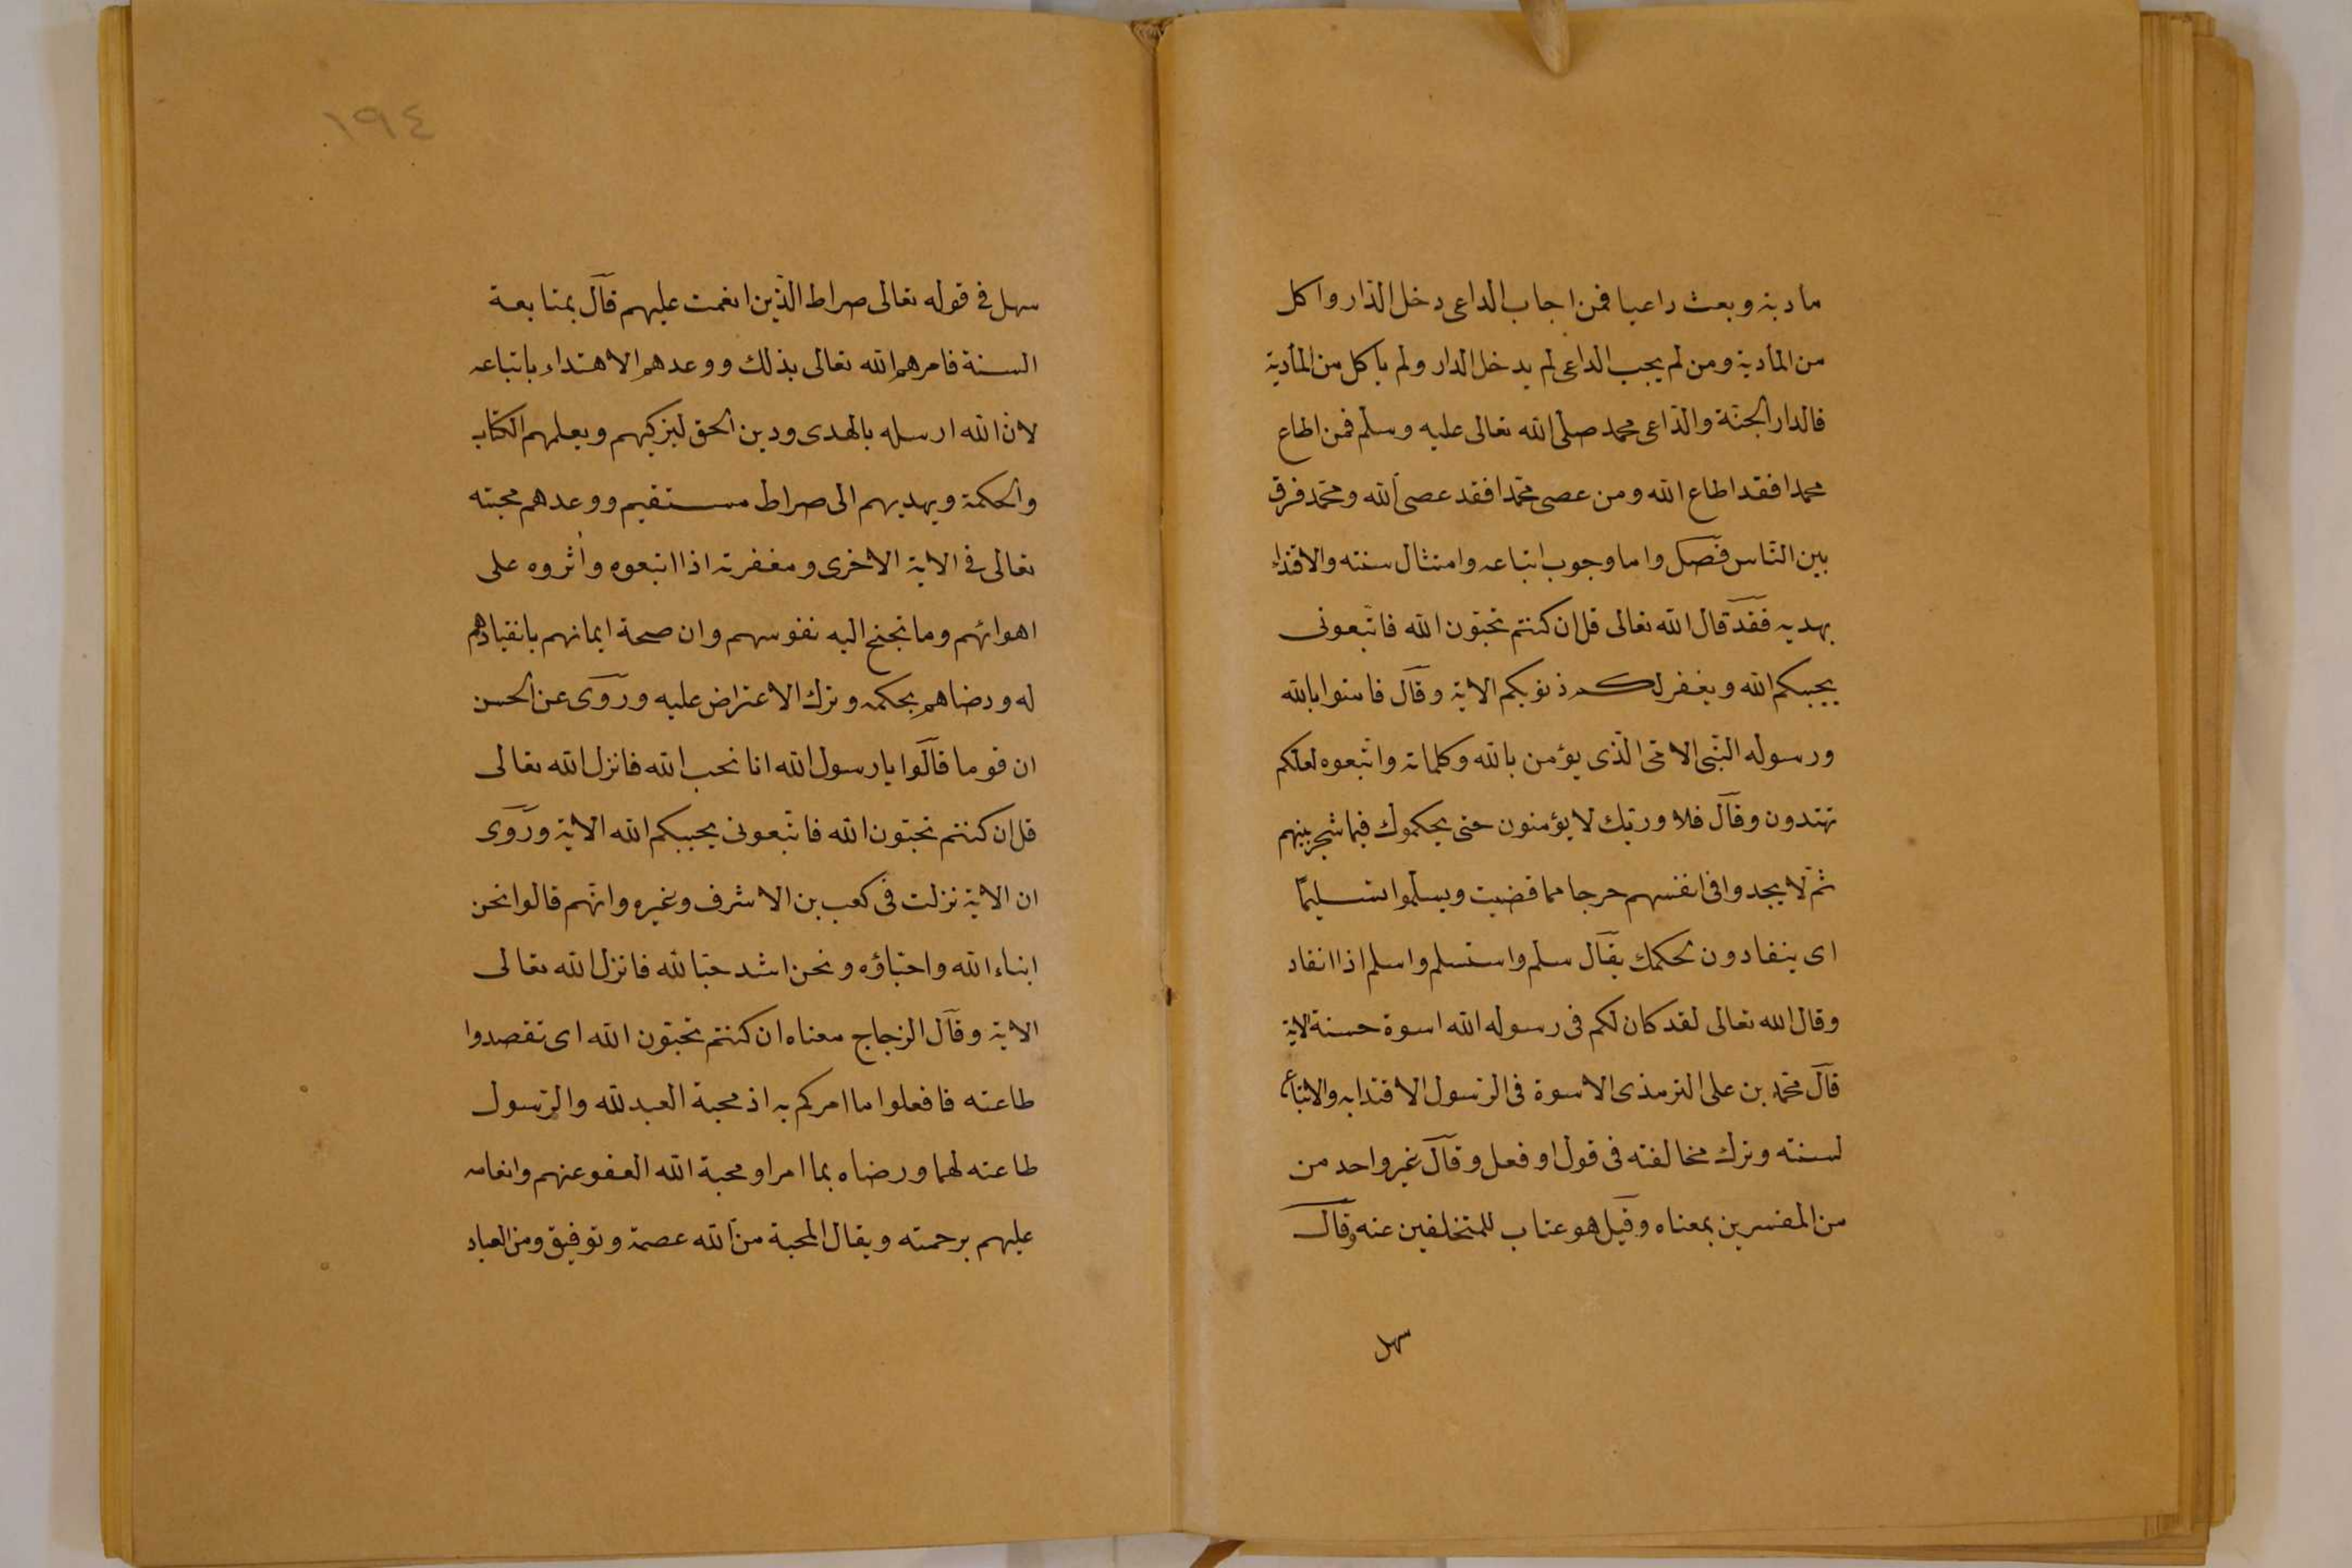 مأدبة وبعث داعيا فمن اجاب الداعى دخل الدار واكل
من المأدبة ومن لم يجب الداعى لم يدخل الدار ولم يأكل من المأدبة
فالدار الجنّة والدّاعى محمد صلى الله تعالى عليه وسلم فمن اطاع
محمدا فقد اطاع الله ومن عصى محمّدا فقد عصى الله ومحمّد فرق
بين النّاس فصل واما وجوب اتباعه وامتثال سنته والاقتداء
بهديه فقد قال الله تعالى قل ان كنتم تحبّون الله فاتّبعونى
يحببكم الله ويغفر لكم ذنوبكم الاية وقال فامنوا بالله
ورسوله النّبى الامّى الّذى يؤمن بالله وكلماته واتّبعوه لعلكم
تهتدون وقال فلا وربّك لا يؤمنون حتى يحكموك فيما شجر بينهم
ثمّ لا يجدوا فى انفسهم حرجا مما قضيت ويسلّموا تسليمًا
اى ينقادون لحكمك يقال سلم واستسلم واسلم اذا انقاد
وقال الله تعالى لقد كان لكم فى رسوله الله اسوة حسنة الاية
قال محمّد بن على الترمذى الاسوة فى الرّسول الاقتدا به والاتباع
لسنته وترك مخالفته فى قول او فعل وقال غير واحد من
من المفسرين بمعناه وقيل هو عتاب للمتخلفين عنه وقال
سهل
١٩٤
سهل فى قوله تعالى صراط الّذين انعمت عليهم قال بمتابعة
السنة فامرهم الله تعالى بذلك ووعدهم الاهتداء باتباعه
لان الله ارسله بالهدى ودين الحق ليزكيهم ويعلمهم الكتاب
والحكمة ويهديهم الى صراط مستقيم ووعدهم محبته
تعالى فى الاية الاخرى ومغفرته اذا اتبعوه وأثروه على
اهوائهم وما تجنح اليه نفوسهم وان صحة ايمانهم بانقيادهم
له ورضاهم بحكمه وترك الاعتراض عليه وروى عن الحسن
ان قوما قالوا يا رسول الله انا نحب الله فانزل الله تعالى
قل ان كنتم تحبّون الله فاتّبعونى يحببكم الله الاية وروى
ان الاية نزلت فى كعب بن الاشرف وغيره وانّهم قالوا نحن
ابناء الله واحبّاؤه ونحن اشد حبّا لله فانزل الله تعالى
الاية وقال الزجاج معناه ان كنتم تحبّون الله اى تقصدوا
طاعته فافعلوا ما امركم به اذ محبة العبد لله والرّسول
طاعته لهما ورضاه بما امرا ومحبة الله العفو عنهم وانعامه
عليهم برحمته ويقال المحبة من الله عصمة وتوفيق ومن العباد